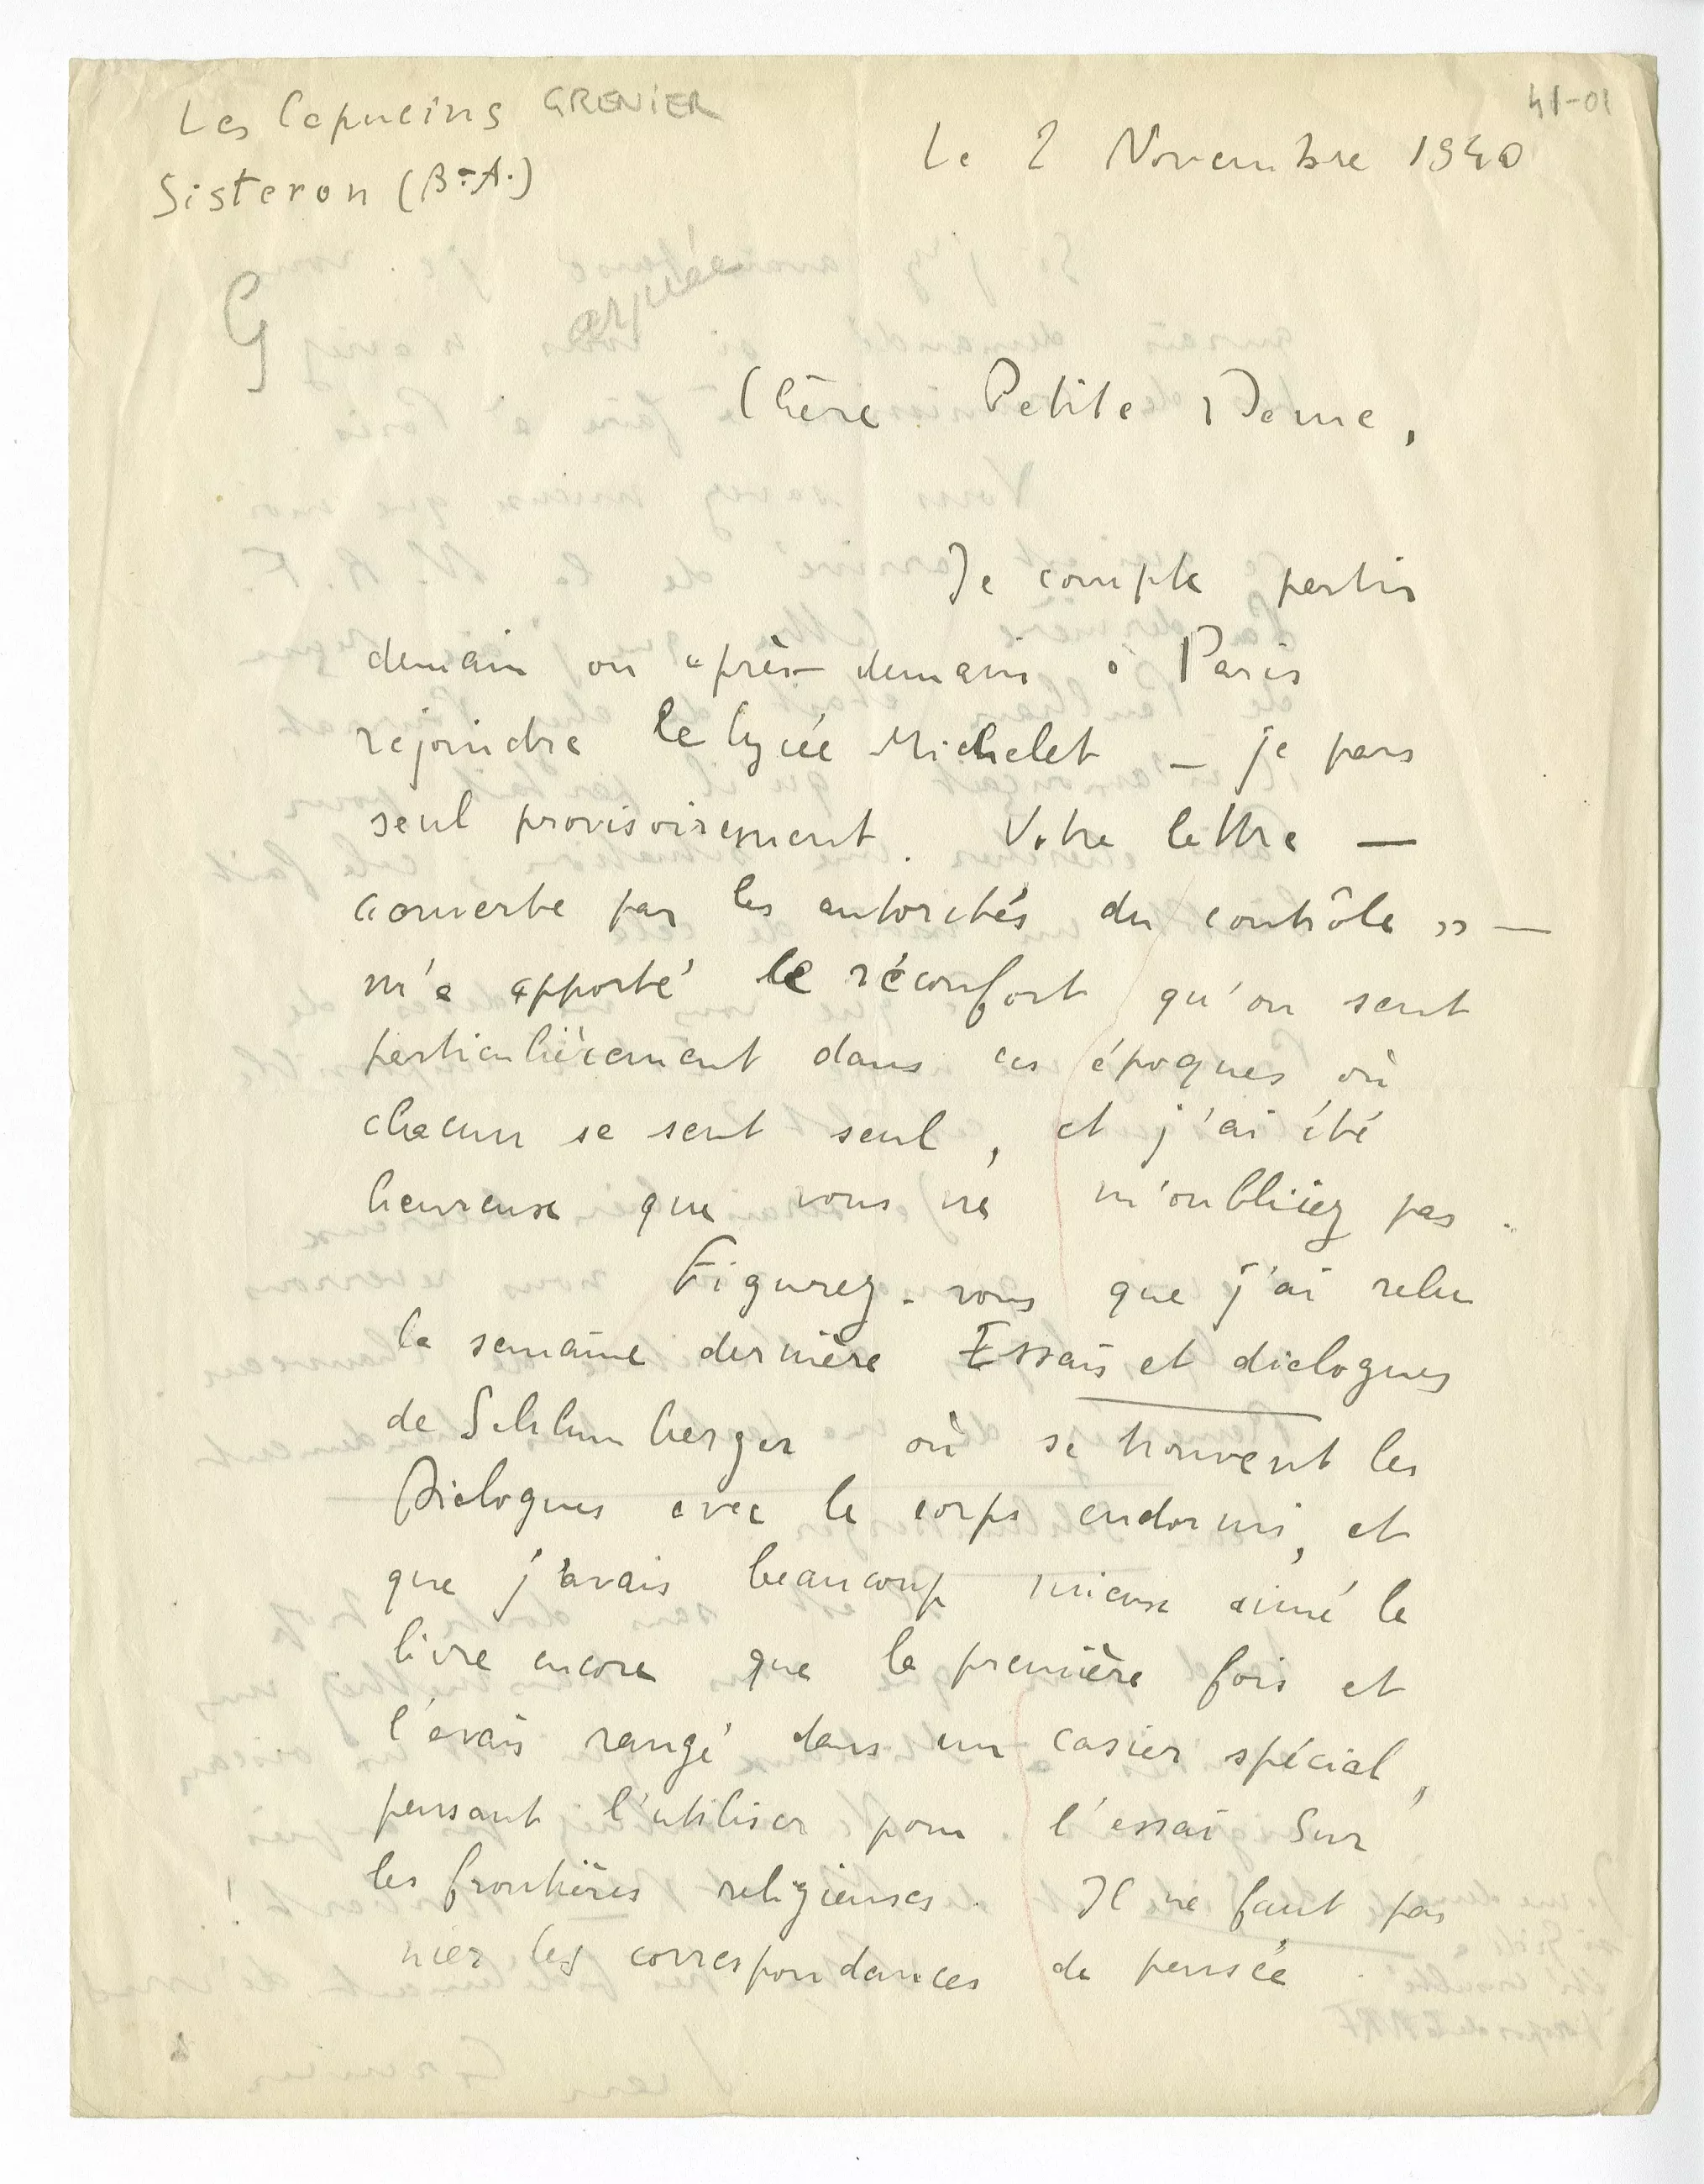 Les Capucins GRENIER
41-01
Sisteron (B.-A.)
Le 2 Novembre 1940
G
Chère Petite Dame,
Je compte partir
demain ou après-demain à Paris
rejoindre le lycée Michelet — je pars
seul provisoirement. Votre lettre —
« ouverte par les autorités du contrôle » —
m'a apporté le réconfort qu'on sent
particulièrement dans ces époques où
chacun se sent seul, et j'ai été
heureux que vous ne m'oubliiez pas.
Figurez-vous que j'ai relu
la semaine dernière Essais et dialogues
de Schlumberger où se trouvent les
Dialogues avec le corps endormi, et
que j'avais beaucoup mieux aimé le
livre encore que la première fois et
l'avais rangé dans un casier spécial,
pensant l'utiliser pour l'essai Sur
les frontières religieuses. Il ne faut pas
nier les correspondances de pensée.